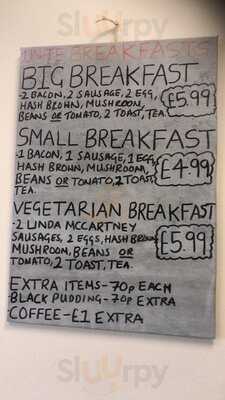 Sluurpy
BREAKFASTS
BIG BREAKFAST
-2 BACON, 2 SAUSAGE, 2 EGG,
HASH BROWN, MUSHROOM,
BEANS OR TOMATO, 2 TOAST, TEA.
£5.99
SMALL BREAKFAST
-1 BACON, 1 SAUSAGE, 1 EGG,
HASH BROWN, MUSHROOM,
BEANS OR TOMATO, 2 TOAST
TEA.
£4.99
VEGETARIAN BREAKFAST
-2 LINDA MCCARTNEY
SAUSAGES, 2 EGGS, HASH BROWN
MUSHROOM, BEANS OR
TOMATO, 2 TOAST, TEA.
£5.99
EXTRA ITEMS-70p EACH
BLACK PUDDING-70p EXTRA
COFFEE-£1 EXTRA
Sluurpy